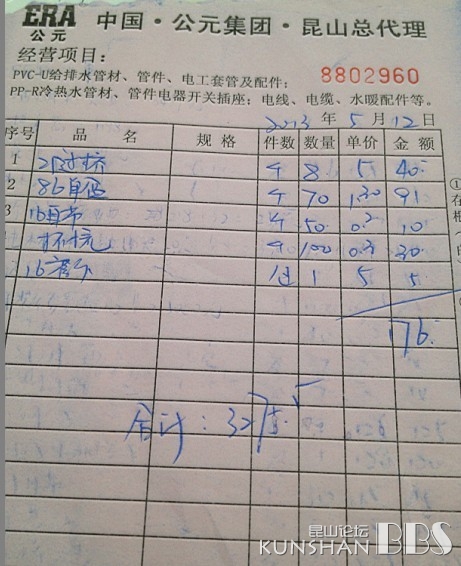 ERA 公元 中国·公元集团·昆山总代理
经营项目:
PVC-U给排水管材、管件、电工套管及配件; 8802960
PP-R冷热水管材、管件电器开关插座; 电线、电缆、水暖配件等。
2013 年 5 月 12 日
序号 品 名 规 格 件数 数量 单价 金 额
1 8 5 40
2 86 70 1.30 91
3 16 50 0.2 10
100 0.3 30
16 1 5 5
176.
合计: 3275.5
昆山论坛
KUNSHAN BBS